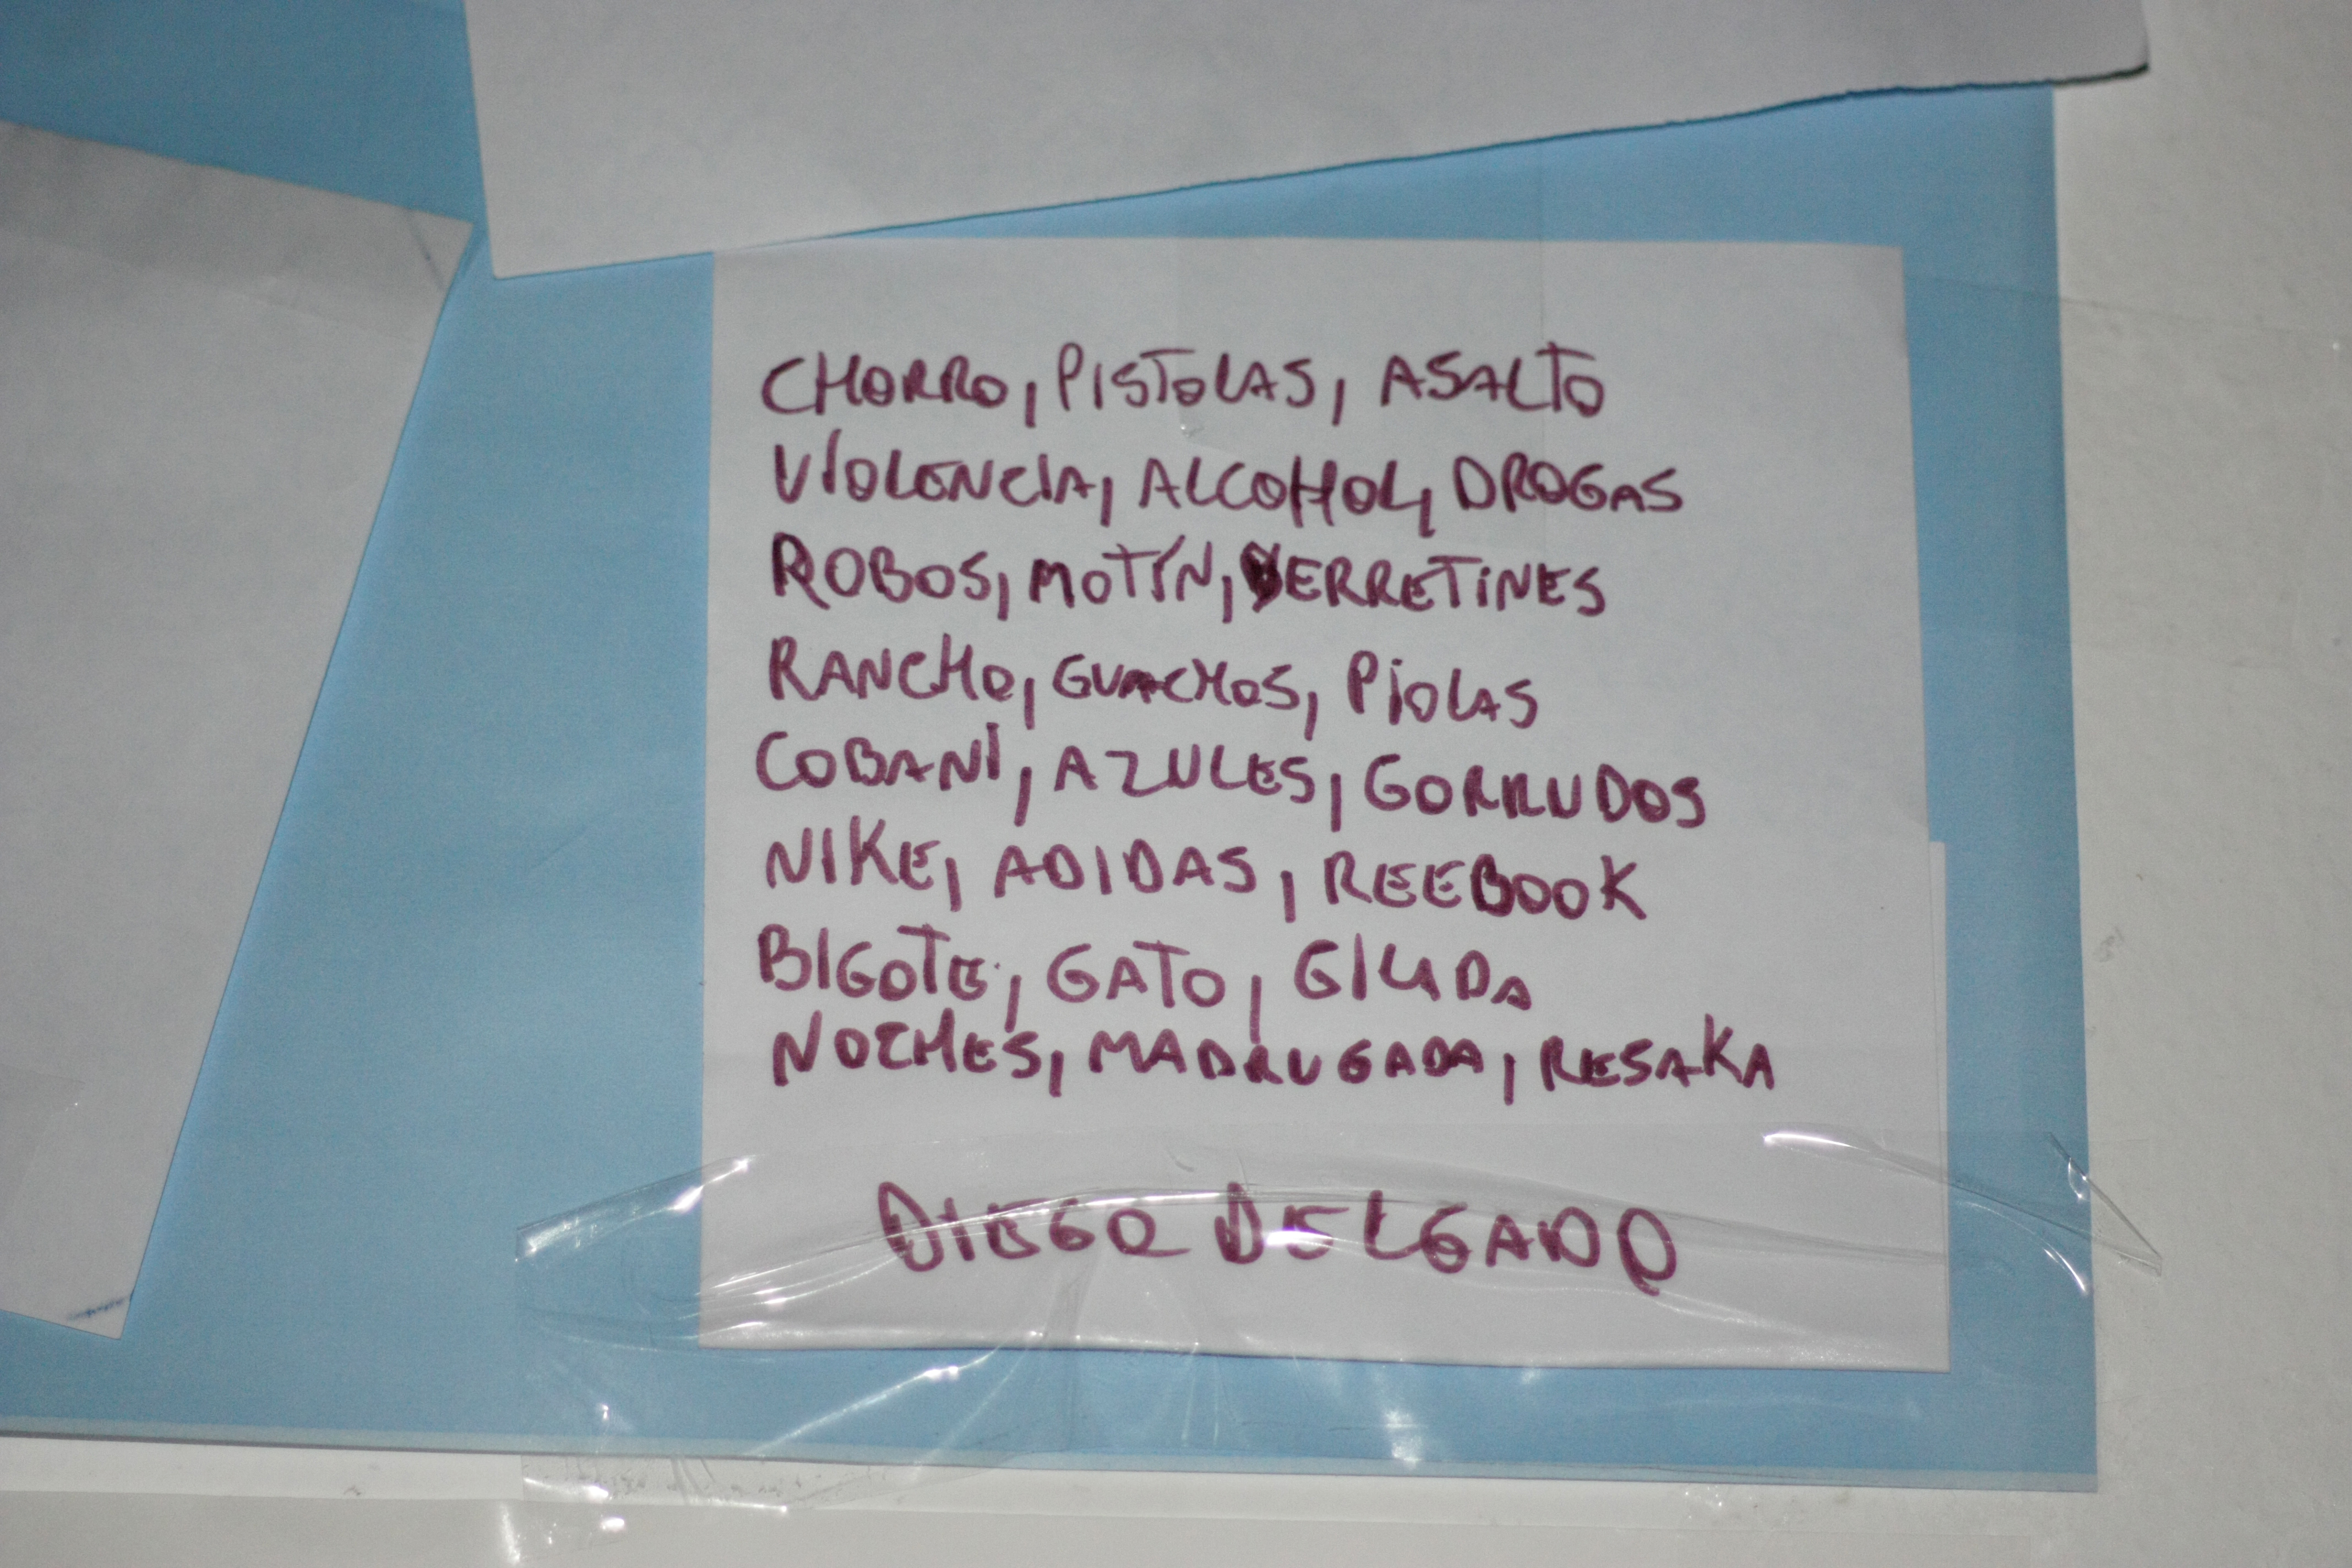 CHORRO, PISTOLAS, ASALTO
VIOLENCIA, ALCOHOL, DROGAS
ROBOS, MOTÍN, BERRETINES
RANCHO, GUACHOS, PIOLAS
COBANI, AZULES, GORRUDOS
NIKE, ADIDAS, REEBOOK
BIGOTE, GATO, GILADA
NOCHES, MADRUGADA, RESAKA
DIEGO DELGADO